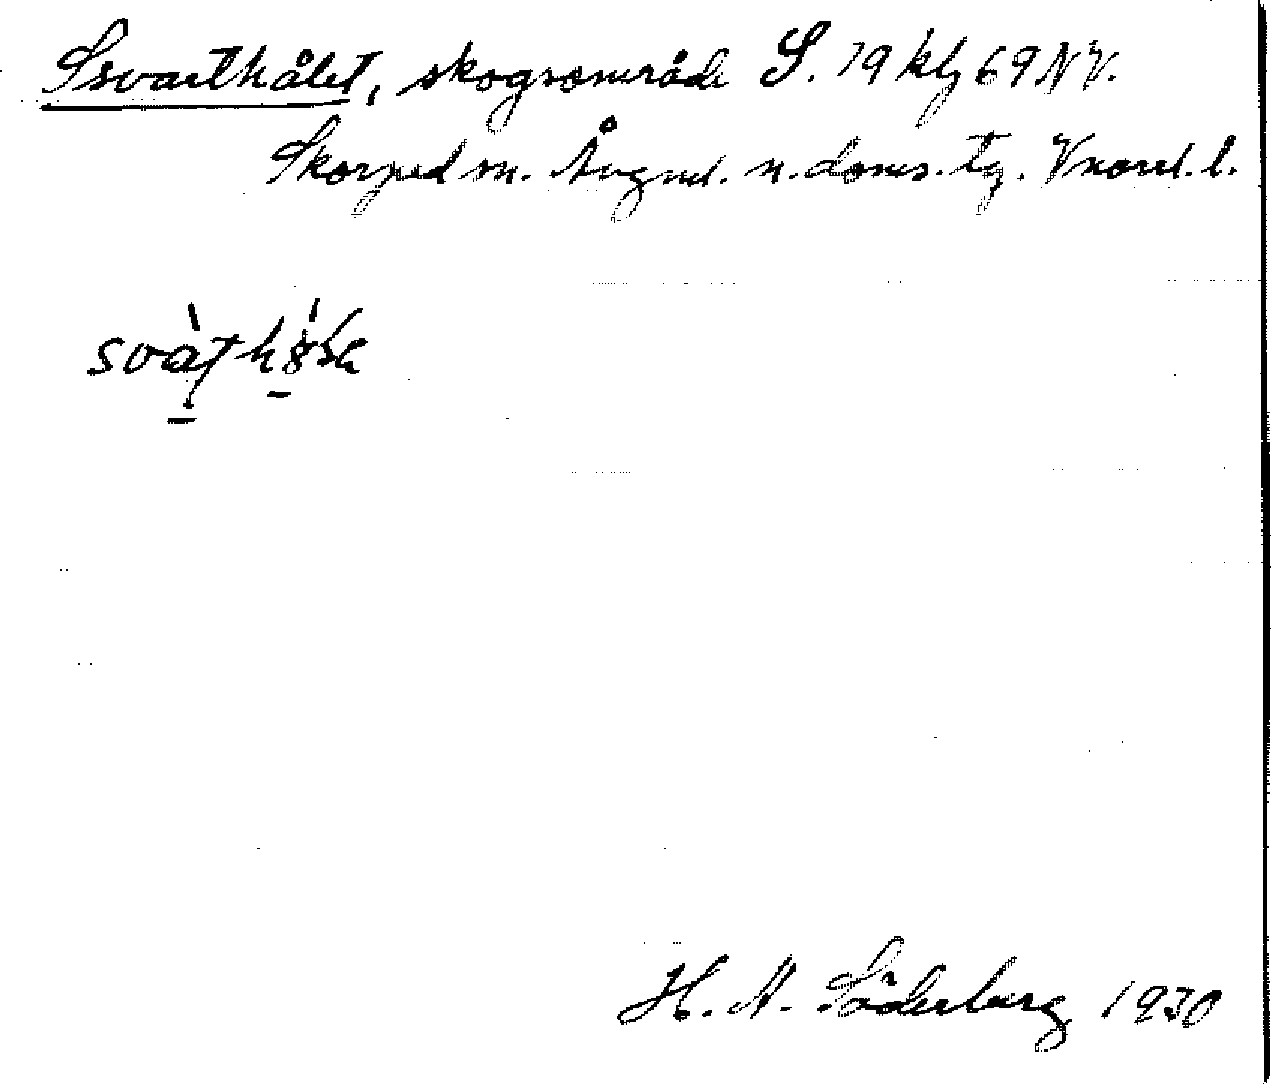 Svarthålet, skogsområde S. 79 klj 69 NV.
Skorped sn. Ångml. n. doms. tg. Vnorrl. l.
H. A. Söderberg 1930